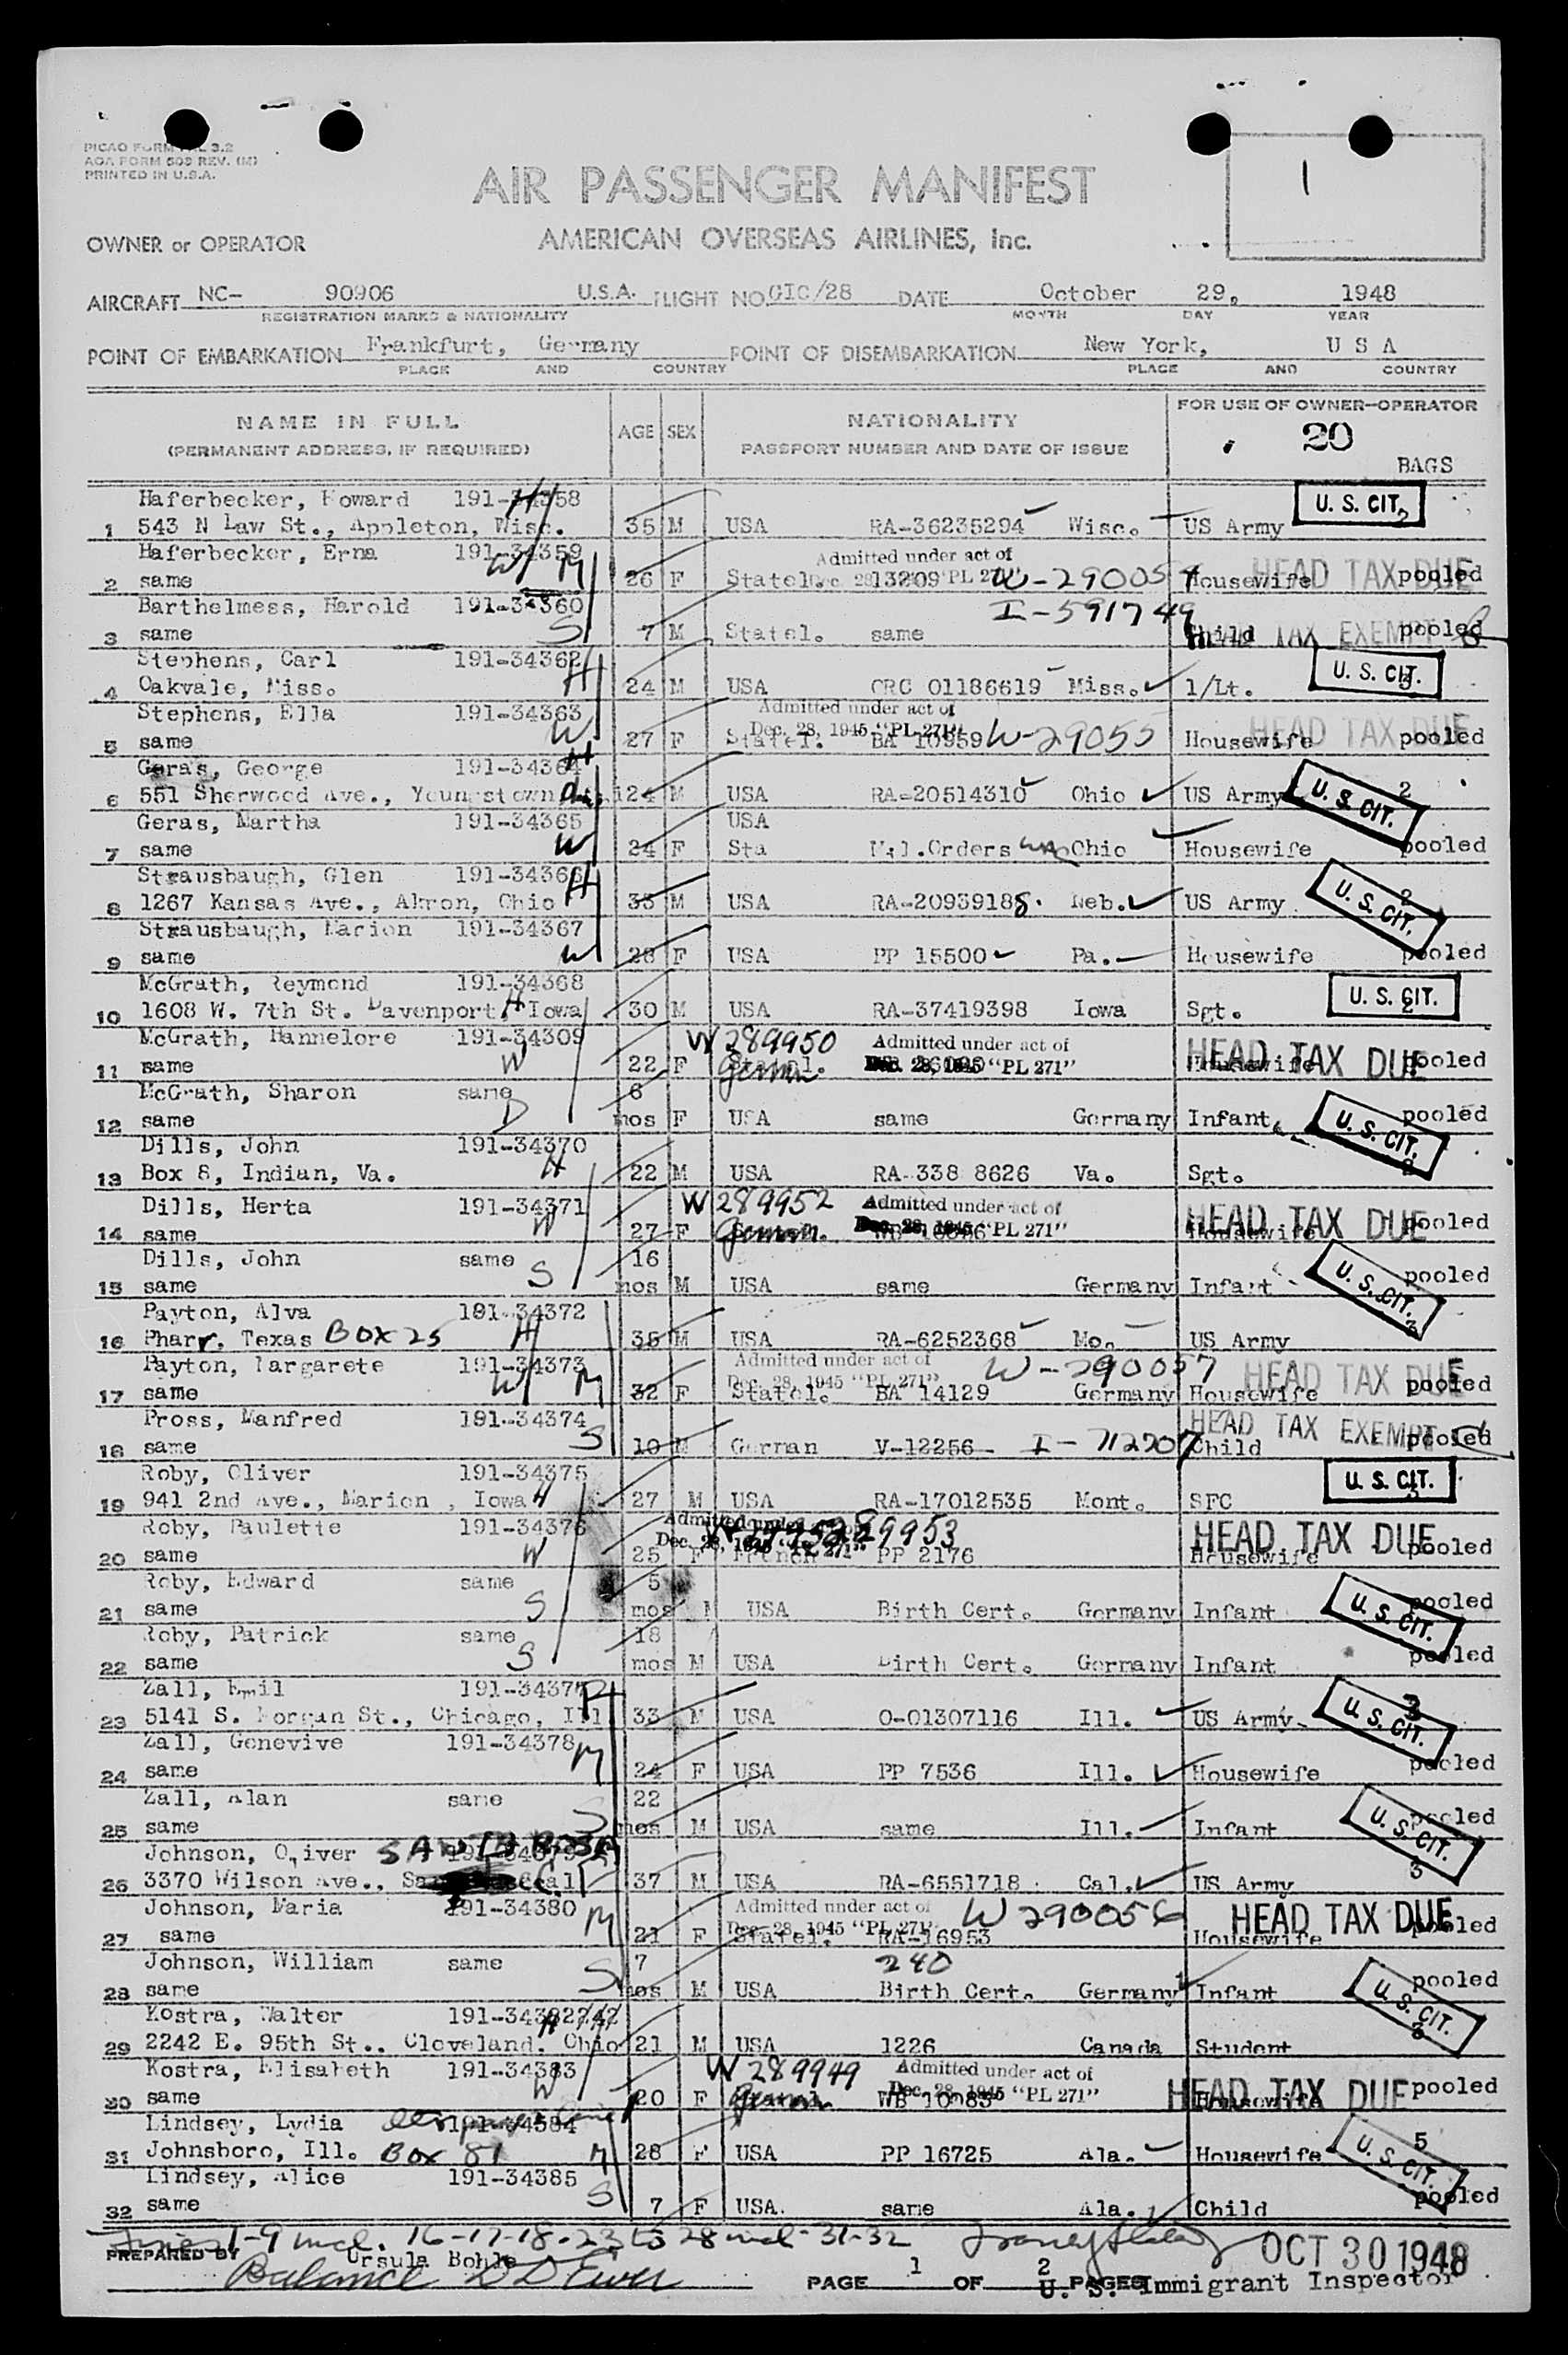 PICAO FORM
AOA FORM 509 REV. (M)
PRINTED IN U.S.A.
1
AIR PASSENGER MANIFEST
OWNER or OPERATOR AMERICAN OVERSEAS AIRLINES, Inc.
AIRCRAFT NC- 90906 U.S.A. FLIGHT NO. GIC/28 DATE October 29, 1948
REGISTRATION MARKS & NATIONALITY MONTH DAY YEAR
POINT OF EMBARKATION Frankfurt, Germany POINT OF DISEMBARKATION New York, U S A
PLACE AND COUNTRY PLACE AND COUNTRY
NAME IN FULL AGE SEX NATIONALITY FOR USE OF OWNER-OPERATOR
(PERMANENT ADDRESS, IF REQUIRED) PASSPORT NUMBER AND DATE OF ISSUE 20
BAGS
Haferbecker, Howard 191-34358 H U. S. CIT. 2
1 543 N Law St., Appleton, Wisc. 35 M USA RA-36235294 Wisc. US Army
Haferbecker, Erna 191-34359 W M Admitted under act of
2 same 26 F Statel. 13209 Dec. 28, "PL 271" W-290054 Housewife HEAD TAX DUE pooled
Barthelmess, Harold 191-34360 I-591749
3 same S 7 M Statel. same Child HEAD TAX EXEMPT pooled
Stephens, Carl 191-34362 H U. S. CIT.
4 Oakvale, Miss. 24 M USA CRC 01186619 Miss. 1/Lt. 3
Stephens, Ella 191-34363 W Admitted under act of
5 same 27 F Statel. BA 10959 Dec. 28, 1945 "PL 271" W-29055 Housewife HEAD TAX DUE pooled
Geras, George 191-34364 H
6 551 Sherwood Ave., Youngstown 24 M USA RA-20514310 Ohio US Army U. S. CIT. 2
Geras, Martha 191-34365 USA
7 same W 24 F Sta Mil.Orders Ohio Housewife pooled
Strausbaugh, Glen 191-34366 H
8 1267 Kansas Ave., Akron, Ohio 33 M USA RA-20939188 Neb. US Army U. S. CIT. 2
Strausbaugh, Marion 191-34367
9 same W 28 F USA PP 15500 Pa. Housewife pooled
McGrath, Reymond 191-34368
10 1608 W. 7th St. Davenport, Iowa H 30 M USA RA-37419398 Iowa Sgt. U. S. CIT. 2
McGrath, Hannelore 191-34309 W 289950 Admitted under act of
11 same W 22 F German Dec. 28, 1945 "PL 271" Housewife HEAD TAX DUE pooled
McGrath, Sharon same 6
12 same D mos F USA same Germany Infant U. S. CIT. pooled
Dills, John 191-34370
13 Box 8, Indian, Va. H 22 M USA RA-338 8626 Va. Sgt. 2
Dills, Herta 191-34371 W 289952 Admitted under act of
14 same W 27 F German. Dec. 28, 1945 "PL 271" Housewife HEAD TAX DUE pooled
Dills, John same 16
15 same S mos M USA same Germany Infant U. S. CIT. pooled
Payton, Alva 191-34372 3
16 Pharr, Texas BOX 25 H 35 M USA RA-6252368 Mo. US Army
Payton, Margarete 191-34373 Admitted under act of W-290057
17 same W M 32 F Statel. BA 14129 Dec. 28, 1945 "PL 271" Germany Housewife HEAD TAX DUE pooled
Pross, Manfred 191-34374 HEAD TAX EXEMPT
18 same S 10 M German V-12256 I-712207 Child pooled
Roby, Oliver 191-34375 U. S. CIT.
19 941 2nd Ave., Marion, Iowa H 27 M USA RA-17012535 Mont. SFC
Roby, Paulette 191-34376 Admitted under 289953 HEAD TAX DUE
20 same W 25 F French PP 2176 Dec. 28, 1945 "PL 271" Housewife pooled
Roby, Edward same 5
21 same S mos M USA Birth Cert. Germany Infant U. S. CIT. pooled
Roby, Patrick same 18
22 same S mos M USA Birth Cert. Germany Infant pooled
Zall, Emil 191-34377 H
23 5141 S. Morgan St., Chicago, Ill 33 M USA O-01307116 Ill. US Army U. S. CIT. 3
Zall, Genevive 191-34378
24 same M 24 F USA PP 7536 Ill. Housewife pooled
Zall, Alan same 22
25 same S mos M USA same Ill. Infant U. S. CIT. pooled
Johnson, Oliver
26 3370 Wilson Ave., 37 M USA RA-6551718 Cal. US Army 3
Johnson, Maria 191-34380 Admitted under act of W 290056 HEAD TAX DUE
27 same M 21 F Statel. RA-16953 Dec. 28, 1945 "PL 271" Housewife pooled
Johnson, William same 7 240
28 same S mos M USA Birth Cert. Germany Infant U. S. CIT. pooled
Kostra, Walter 191-34382
29 2242 E. 95th St., Cleveland, Ohio H 21 M USA 1226 Canada Student 3
Kostra, Elisabeth 191-34383 W 289949 Admitted under act of
30 same W 20 F German WB 10083 Dec. 28, 1945 "PL 271" Housewife HEAD TAX DUE pooled
Lindsey, Lydia 191-34384
31 Johnsboro, Ill. Box 81 M 28 F USA PP 16725 Ala. Housewife U. S. CIT. 5
Lindsey, Alice 191-34385
32 same S 7 F USA. same Ala. Child pooled
1-9 incl. 16-17-18-23 to 28 incl-31-32
PREPARED BY Ursula Bohle OCT 30 1948
Balance
PAGE 1 OF 2 PAGES U. S. Immigrant Inspector